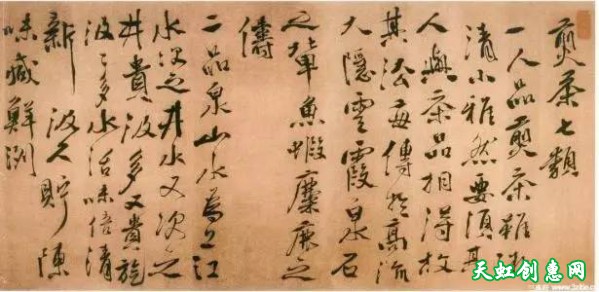 煎茶七類
一人品煎茶雖
清小雅然要須其
人與茶品相得故
其法每傳於高流
大隱雲霞泉石
之輩魚蝦麋鹿之
儔
二品泉山水為上江
水次之井水又次之
井貴汲多又貴旋
汲汲多水活味倍清
新汲久貯陳
味減鮮洌
天虹创惠网